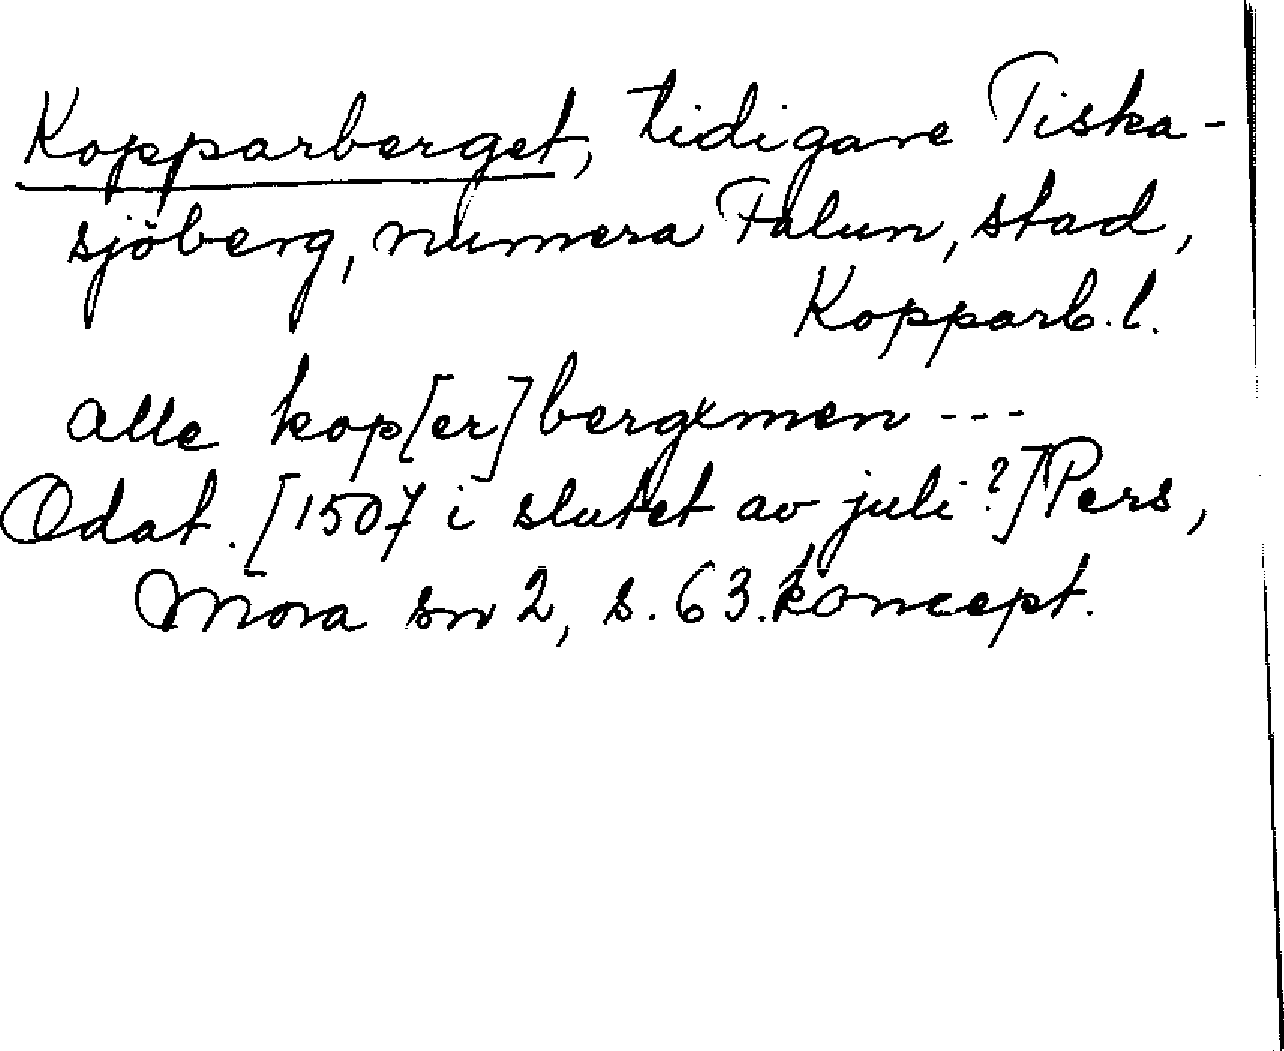 Kopparberget, tidigare Tiska-
sjöberg, numera Falun, stad,
Kopparb. l.
alle kop[er]bergxmen ---
Odat. [1507 i slutet av juli?] Pers,
Mora sn 2, s. 63. koncept.